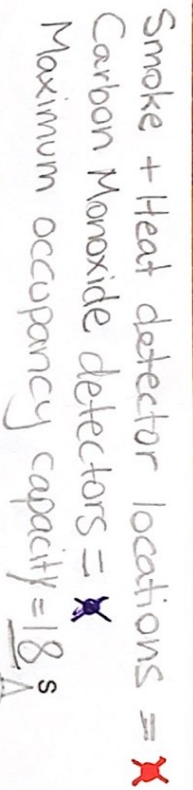 Smoke + Heat detector locations = X
Carbon Monoxide detectors = X
Maximum occupancy capacity = 18
S